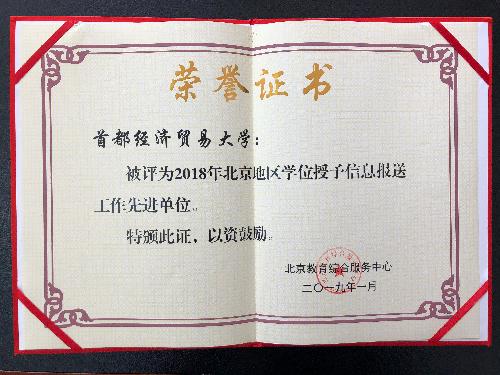 荣誉证书
首都经济贸易大学：
被评为2018年北京地区学位授予信息报送
工作先进单位。
特颁此证，以资鼓励。
北京教育综合服务中心
二〇一九年一月